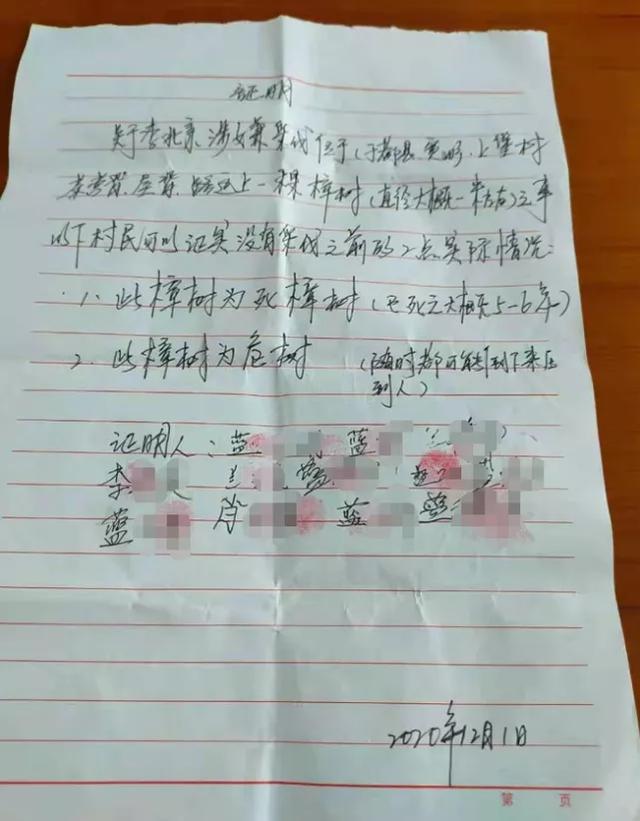 证明
关于李北京、涉嫌采伐位于(于都县 上堡村
屋背 上一棵樟树(直径大概一米左右)之事
以下村民可以证实没有采伐之前的2点实际情况:
1、此樟树为死樟树(已死之大概5-6年)
2、此樟树为危树 (随时都可能倒下来压
到人)
证明人:蓝 蓝 兰
李 兰 蓝
蓝 肖 蓝 蓝
2020年12月1日
第 页